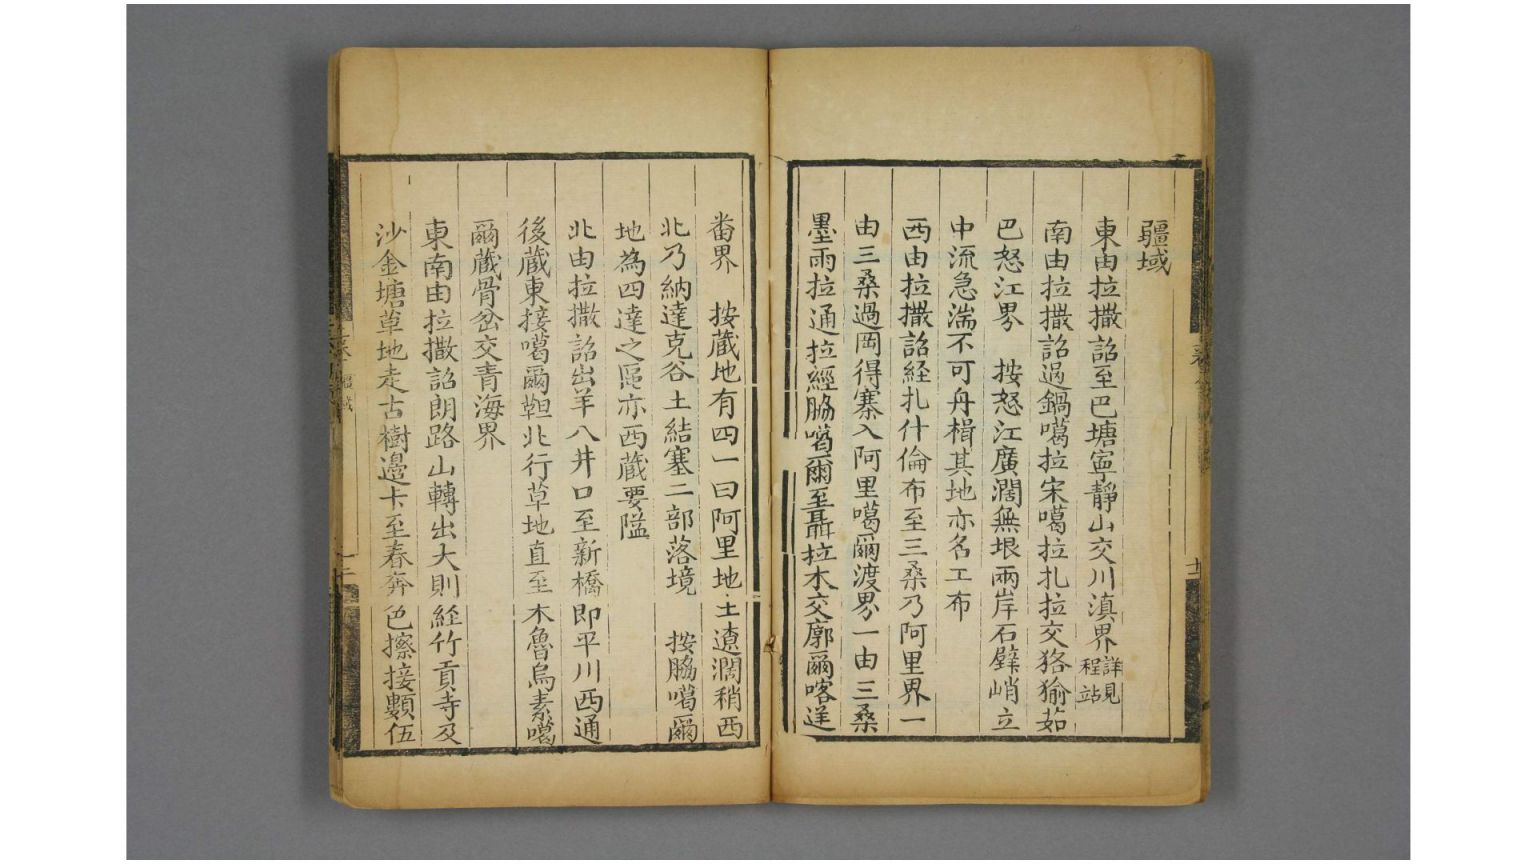 疆域
東由拉撒詔至巴塘寧靜山交川滇界詳見程站
南由拉撒詔過鍋噶拉宋噶拉扎拉交狢㺄茹
巴怒江界　按怒江廣濶無垠兩岸石壁峭立
中流急湍不可舟楫其地亦名工布
西由拉撒詔経扎什倫布至三桑乃阿里界一
由三桑過岡得寨入阿里噶爾渡界一由三桑
墨雨拉通拉經脇噶爾至聶拉木交廓爾喀迋
畨界　按蔵地有四一曰阿里地土遼濶稍西
北乃納達克谷土結塞二部落境　按脇噶爾
地為四達之區亦西蔵要隘
北由拉撒詔出羊八井口至新橋即平川西通
後蔵東接噶爾靼北行草地直至木魯烏素噶
爾蔵骨岔交青海界
東南由拉撒詔朗路山轉出大則経竹貢寺及
沙金塘草地走古樹邉卡至春奔色擦接數伍